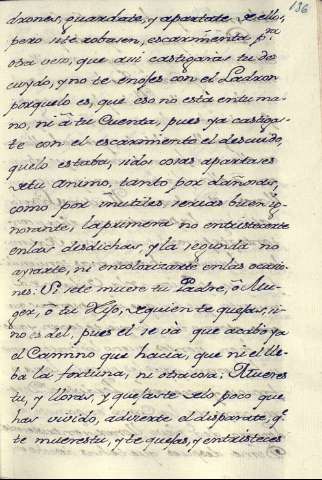 136
drones, guardate, y apartate de ellos,
pero si te robasen, escarmienta pª
otra vez, que aqui castigaràs tu des
cuydo, y no te enojes con el Ladron
porque lo es, que eso no està en tu ma-
no, ni à tu Cuenta, pues ya castigas-
te con el escarmiento el descuido,
que lo estaba, si dos cosas apartases
de tu animo, tanto por dañosas,
como por inutiles, serias buen ig-
norante, la primera no entristecerte
en las desdichas, y la segunda no
ayrarte, ni encolorizarte en las ocacio-
nes: Si se te muere tu Padre, ò Mu-
ger, ò tu Hijo, de quien te quejas, si
no es de el, pues el se và que acabò ya
el Camino que hacia, que ni el lle-
ba la fortuna, ni otra cosa: Mueres
tu, y lloras, y quejaste de lo poco que
has vivido, advierte el disparate, q.e
te mueres tu, y te quejas, y entristeces